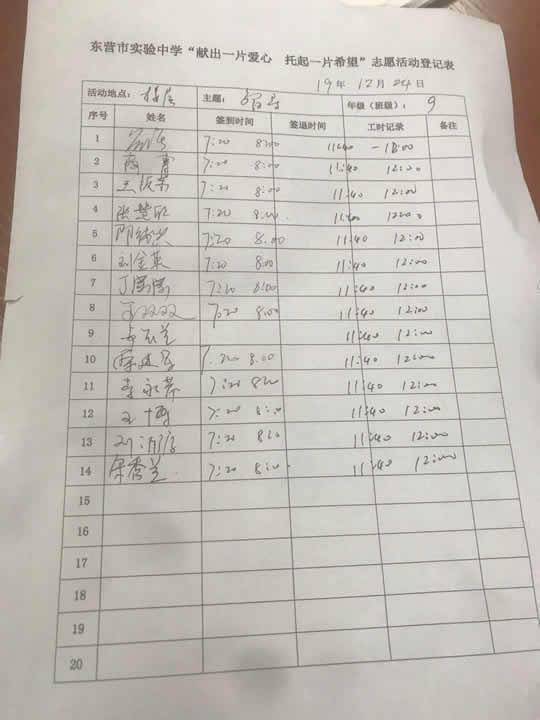 东营市实验中学“献出一片爱心 托起一片希望”志愿活动登记表
19年 12月 24日
活动地点： 主题： 年级（班级）： 9
序号 姓名 签到时间 签退时间 工时记录 备注
1 7:20 8:00 11:40 - 12:00
2 7:20 8:00 11:40 12:00
3 7:20 8:00 11:40 12:00
4 张楚欣 7:20 8:00 11:40 12:00
5 7:20 8:00 11:40 12:00
6 刘金英 7:20 8:00 11:40 12:00
7 丁 7:20 8:00 11:40 12:00
8 王双双 7:20 8:00 11:40 12:00
9 11:40 12:00
10 7:20 8:00 11:40 12:00
11 李永芹 7:20 8:00 11:40 12:00
12 王博 7:20 8:00 11:40 12:00
13 刘 7:20 8:00 11:40 12:00
14 宋秀兰 7:20 8:00 11:40 12:00
15
16
17
18
19
20